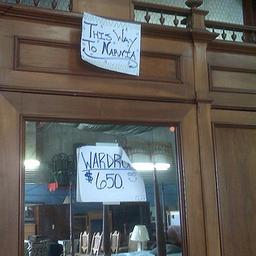 THIS WAY
TO NARNIA
WARDRO
$650.00